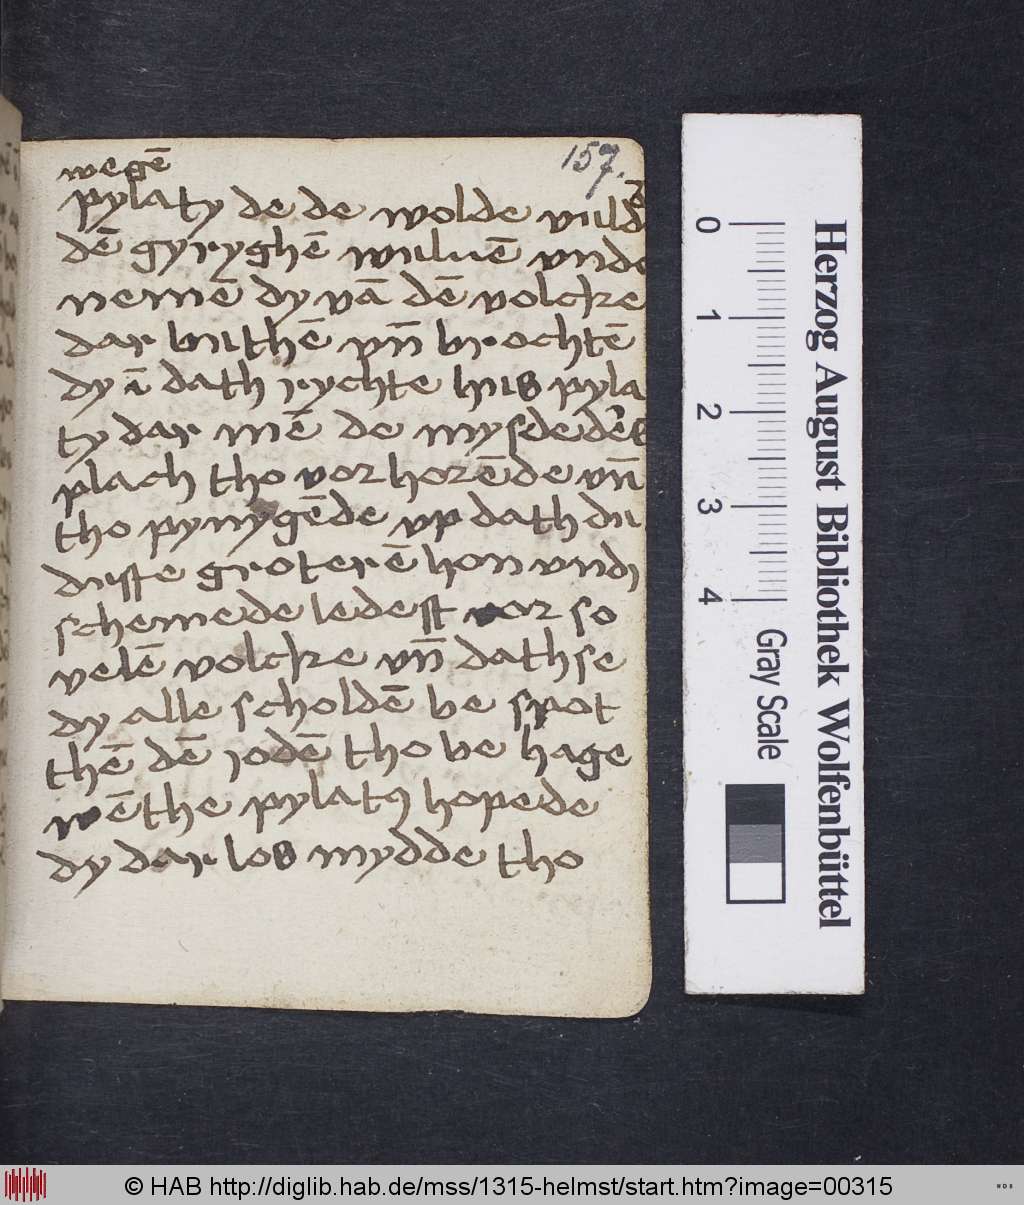 wegē
157.
pylaty de de wolde vuld
dē gyryghē wuluē vnde
nemē dy vā dē volcke
dar buthē vn̄ brochtē
dy ī dath rychte hus pyla
ty dar mē de mysdeders
plach tho vorhorēde vn̄
tho pynygēde vp dath du
dusse groterē hon vnde
schemede ledest vor so
velē volcke vn̄ dath se
dy alle scholdē be spot
thē dē jodē tho be hage
wēthe pylatꝰ hopede
dy dar los mydde tho
0 1 2 3 4
Gray Scale
Herzog August Bibliothek Wolfenbüttel
© HAB http://diglib.hab.de/mss/1315-helmst/start.htm?image=00315